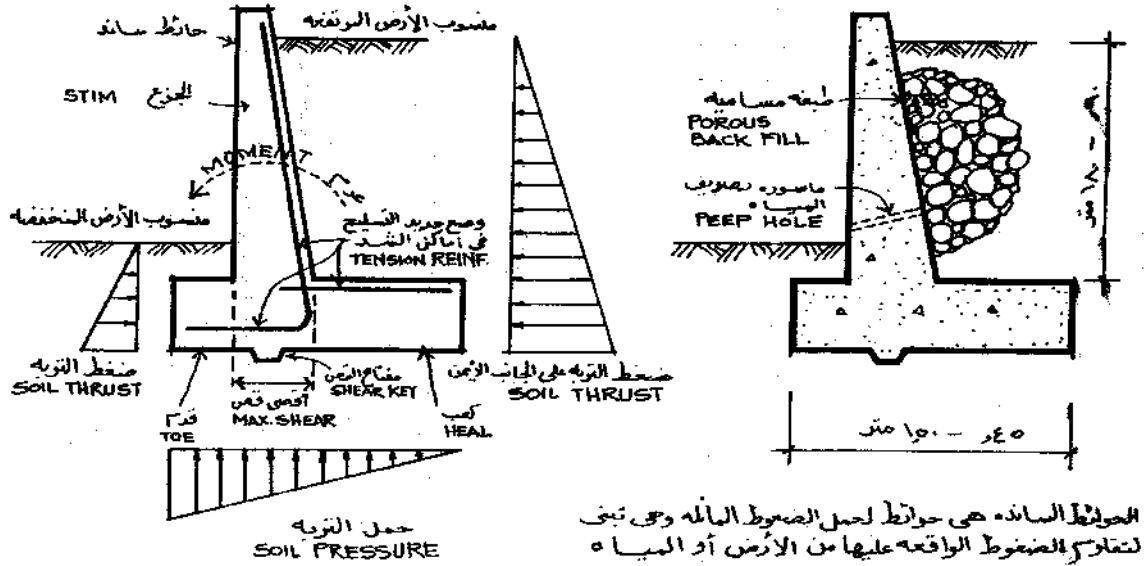 حائط ساند
منسوب الأرض المرتفعه
STIM
الجزع
MOMENT
عزم
منسوب الأرض المنخفضه
وضع حديد التسليح
في أماكن الشد
TENSION REINF.
ضغط التربه
SOIL THRUST
قدم
TOE
أقصى قص
MAX. SHEAR
مفتاح القص
SHEAR KEY
كعب
HEAL
ضغط التربه على الجانب الأيمن
SOIL THRUST
حمل التربه
SOIL PRESSURE
طبقه مساميه
POROUS
BACK FILL
ماسوره تصريف
المياه
PEEP HOLE
متر
٤٥ر - ١,٥٠ متر
الحوائط السانده هى حوائط لحمل الضغوط المائله وهى تبنى
لتقاوم الضغوط الواقعه عليها من الأرض أو المياه